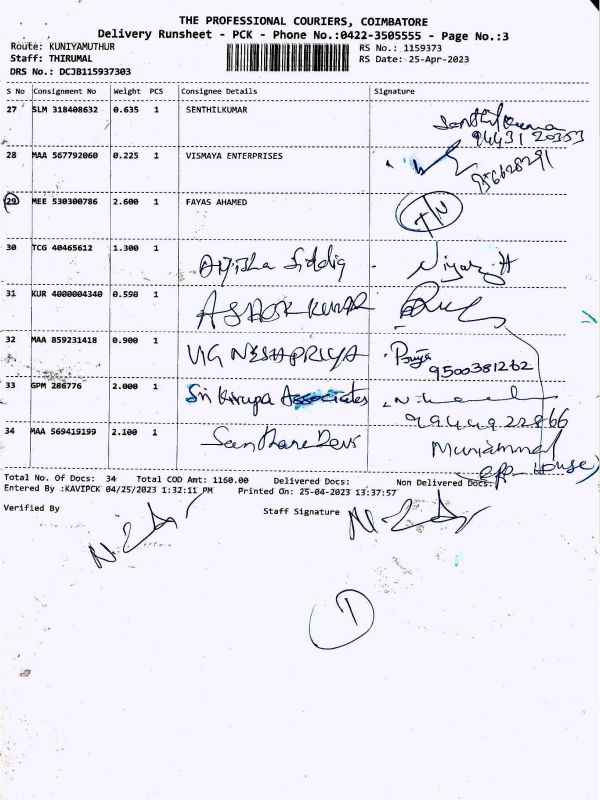 THE PROFESSIONAL COURIERS, COIMBATORE
Delivery Runsheet - PCK - Phone No.:0422-3505555 - Page No.:3
Route: KUNIYAMUTHUR RS No.: 1159373
Staff: THIRUMAL RS Date: 25-Apr-2023
DRS No.: DCJB115937303
S No Consignment No Weight PCS Consignee Details Signature
27 SLM 318408632 0.635 1 SENTHILKUMAR Senthil Kumar
94431 20353
28 MAA 567792060 0.225 1 VISMAYA ENTERPRISES
29 MEE 530300786 2.600 1 FAYAS AHAMED
30 TCG 40465612 1.300 1 Siddiq
31 KUR 4000004340 0.590 1 ASHOK KUMAR
32 MAA 859231418 0.900 1 VIGNESHPRIYA Priya
9500381262
33 GPM 286776 2.000 1 Sri Kirupa Associates
34 MAA 569419199 2.100 1 Muniammal
opp House)
Total No. Of Docs: 34 Total COD Amt: 1160.00 Delivered Docs: Non Delivered Docs:
Entered By :KAVIPCK 04/25/2023 1:32:11 PM Printed On: 25-04-2023 13:37:57
Verified By Staff Signature
1